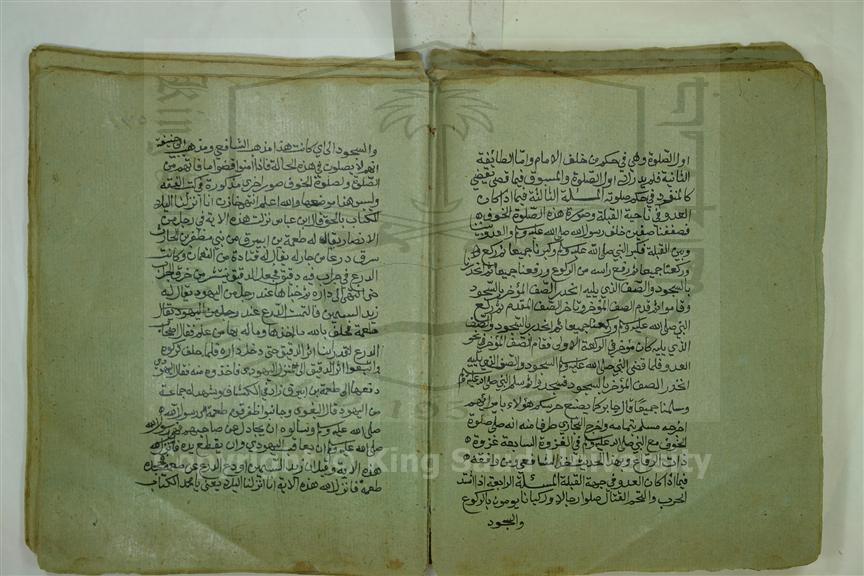 اول الصلوة وهي في حكم من خلف الامام واما الطائفة
الثانية فلم يدركوا اول الصلوة والمسبوق فيما قضى يقضي
كالمنفرد في حكم صلوته المسئلة الثالثة فيما اذا كان
العدو في ناحية القبلة وصورة هذه الصلوة الخوف
فصففنا صفين خلف رسول الله صلى الله عليه وسلم والعدو بيننا
وبين القبلة فكبر النبي صلى الله عليه وسلم وكبرنا جميعا ثم ركع
وركعنا جميعا ثم رفع راسه من الركوع ورفعنا جميعا ثم انحدر
بالسجود والصف الذي يليه انحدر الصف المؤخر بالسجود
وقاموا ثم تقدم الصف المؤخر وتاخر الصف المقدم ثم ركع
النبي صلى الله عليه وسلم وركعنا جميعا ثم انحدر بالسجود والصف
الذي يليه كان مؤخر في الركعة الاولى فقام الصف المؤخر في نحو
العدو فلما قضى النبي صلى الله عليه وسلم السجود والصف الذي يليه
انحدر الصف المؤخر بالسجود فسجدوا ثم سلم النبي صلى الله عليه وسلم
وسلمنا جميعا قال جابر كما يصنع حرسكم هؤلاء بامرائهم
اخرجه مسلم بتمامه واخرج البخاري طرفا منه انه صلى صلوة
الخوف مع النبي صلى الله عليه وسلم في الغزوة السابعة غزوة
ذات الرقاع وبهذا الحديث اخذ الشافعي ومن وافقه
فيما اذا كان العدو في جهة القبلة المسئلة الرابعة اذا اشتد
الحرب والتحم القتال صلوا رجالا وركبانا يومون بالركوع
والسجود
والسجود الى اي كانت هذا مذهب الشافعي ومذهب ابي حنيفة
انهم لا يصلون في هذه الحالة فاذا امنوا قضوا ما فاتهم من
الصلوة ولصلوة الخوف صور اخرى مذكورة في كتب الفقه
وليس هنا موضعها والله اعلم انتهى خازن انا انزلنا اليك
الكتاب بالحق قال ابن عباس نزلت هذه الاية في رجل من
الانصار يقال له طعمة بن ابيرق من بني ظفر بن الحارث
سرق درعا من جار له يقال له قتادة بن النعمان وكانت
الدرع في جراب فيه دقيق فجعل الدقيق ينتثر من خرق الجراب
حتى انتهى الى داره ثم خباها عند رجل من اليهود يقال له
زيد السمين فالتمست الدرع عند رجل من اليهود فقال
طعمة فحلف بالله ما اخذها وماله بها من علم فقال اصحاب
الدرع لقد راينا اثر الدقيق حتى دخل داره فلما حلف تركوه
واتبعوا اثر الدقيق الى منزل اليهودي فاخذوه منه فقال اليهودي
دفعها الي طعمة بن ابيرق زاد في الكشاف وشهد له جماعة
من اليهود قال البغوي وجاء بنوا ظفر قوم طعمة الى رسول الله
صلى الله عليه وسلم وسالوه ان يجادل عن صاحبهم فهم رسول الله
صلى الله عليه وسلم ان يعاقب اليهودي وان يقطع يده فانزل الله
هذه الاية وقيل ان زيد السمين اودع الدرع عند طعمة فجحده
طعمة فانزل الله هذه الاية انا انزلنا اليك يعني يا محمد الكتاب
Copyright © King Saud University
1957